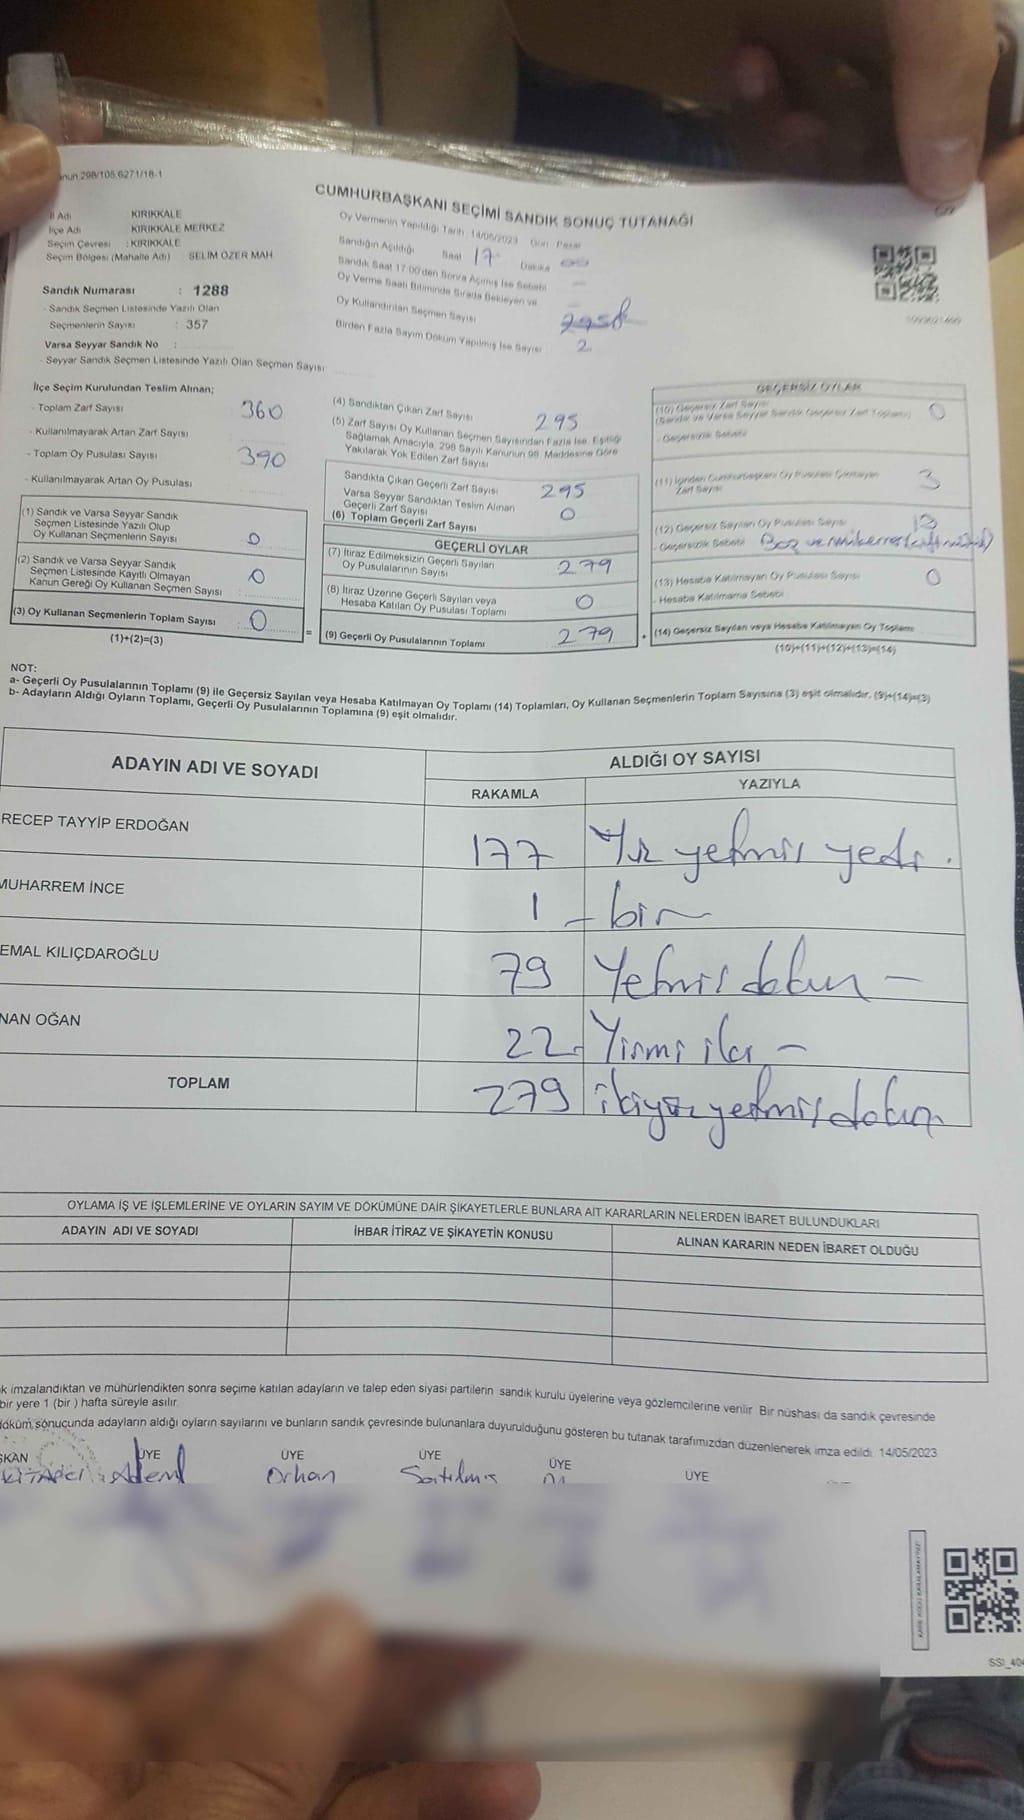 298/105.6271/18-1
CUMHURBAŞKANI SEÇİMİ SANDIK SONUÇ TUTANAĞI
İl Adı KIRIKKALE
İlçe Adı KIRIKKALE MERKEZ
Seçim Çevresi : KIRIKKALE
Seçim Bölgesi (Mahalle Adı) SELİM ÖZER MAH
Sandık Numarası : 1288
- Sandık Seçmen Listesinde Yazılı Olan
Seçmenlerin Sayısı : 357
Varsa Seyyar Sandık No :
- Seyyar Sandık Seçmen Listesinde Yazılı Olan Seçmen Sayısı
Oy Vermenin Yapıldığı Tarih : 14/05/2023 Gün Pazar
Sandığın Açıldığı Saat 17 Dakika
Sandık Saat 17:00'den Sonra Açılmış İse Sebebi
Oy Verme Saati Bitiminde Sırada Bekleyen ve
Oy Kullandırılan Seçmen Sayısı
Birden Fazla Sayım Döküm Yapılmış İse Sayısı 2
İlçe Seçim Kurulundan Teslim Alınan;
- Toplam Zarf Sayısı 360
- Kullanılmayarak Artan Zarf Sayısı
- Toplam Oy Pusulası Sayısı 390
- Kullanılmayarak Artan Oy Pusulası
(1) Sandık ve Varsa Seyyar Sandık
Seçmen Listesinde Yazılı Olup
Oy Kullanan Seçmenlerin Sayısı 0
(2) Sandık ve Varsa Seyyar Sandık
Seçmen Listesinde Kayıtlı Olmayan
Kanun Gereği Oy Kullanan Seçmen Sayısı 0
(3) Oy Kullanan Seçmenlerin Toplam Sayısı : 0 =
(1)+(2)=(3)
(4) Sandıktan Çıkan Zarf Sayısı 295
(5) Zarf Sayısı Oy Kullanan Seçmen Sayısından Fazla İse, Eşitliği
Sağlamak Amacıyla, 298 Sayılı Kanunun 98. Maddesine Göre
Yakılarak Yok Edilen Zarf Sayısı
Sandıkta Çıkan Geçerli Zarf Sayısı 295
Varsa Seyyar Sandıktan Teslim Alınan
Geçerli Zarf Sayısı 0
(6) Toplam Geçerli Zarf Sayısı
GEÇERLİ OYLAR
(7) İtiraz Edilmeksizin Geçerli Sayılan
Oy Pusulalarının Sayısı 279
(8) İtiraz Üzerine Geçerli Sayılan veya
Hesaba Katılan Oy Pusulası Toplamı 0
(9) Geçerli Oy Pusulalarının Toplamı 279 +
GEÇERSİZ OYLAR
(10) Geçersiz Zarf Sayısı 0
(Sandık ve Varsa Seyyar Sandık Geçersiz Zarf Toplamı)
- Geçersizlik Sebebi
(11) İçinden Cumhurbaşkanı Oy Pusulası Çıkmayan
Zarf Sayısı 3
(12) Geçersiz Sayılan Oy Pusulası Sayısı 13
- Geçersizlik Sebebi Boş ve mükerrer
(13) Hesaba Katılmayan Oy Pusulası Sayısı 0
- Hesaba Katılmama Sebebi
(14) Geçersiz Sayılan veya Hesaba Katılmayan Oy Toplamı
(10)+(11)+(12)+(13)=(14)
NOT:
a- Geçerli Oy Pusulalarının Toplamı (9) ile Geçersiz Sayılan veya Hesaba Katılmayan Oy Toplamı (14) Toplamları, Oy Kullanan Seçmenlerin Toplam Sayısına (3) eşit olmalıdır. (9)+(14)=(3)
b- Adayların Aldığı Oyların Toplamı, Geçerli Oy Pusulalarının Toplamına (9) eşit olmalıdır.
ADAYIN ADI VE SOYADI ALDIĞI OY SAYISI
RAKAMLA YAZIYLA
RECEP TAYYİP ERDOĞAN 177 Yüz yetmiş yedi .
MUHARREM İNCE 1 - bir
EMAL KILIÇDAROĞLU 79 Yetmiş dokuz -
NAN OĞAN 22 Yirmi iki -
TOPLAM 279 ikiyüz yetmiş dokuz
OYLAMA İŞ VE İŞLEMLERİNE VE OYLARIN SAYIM VE DÖKÜMÜNE DAİR ŞİKAYETLERLE BUNLARA AİT KARARLARIN NELERDEN İBARET BULUNDUKLARI
ADAYIN ADI VE SOYADI İHBAR İTİRAZ VE ŞİKAYETİN KONUSU ALINAN KARARIN NEDEN İBARET OLDUĞU
k imzalandıktan ve mühürlendikten sonra seçime katılan adayların ve talep eden siyasi partilerin sandık kurulu üyelerine veya gözlemcilerine verilir. Bir nüshası da sandık çevresinde
bir yere 1 (bir ) hafta süreyle asılır.
döküm sonucunda adayların aldığı oyların sayılarını ve bunların sandık çevresinde bulunanlara duyurulduğunu gösteren bu tutanak tarafımızdan düzenlenerek imza edildi. 14/05/2023
ŞKAN ÜYE ÜYE ÜYE ÜYE ÜYE
Adem Orhan Satılmış